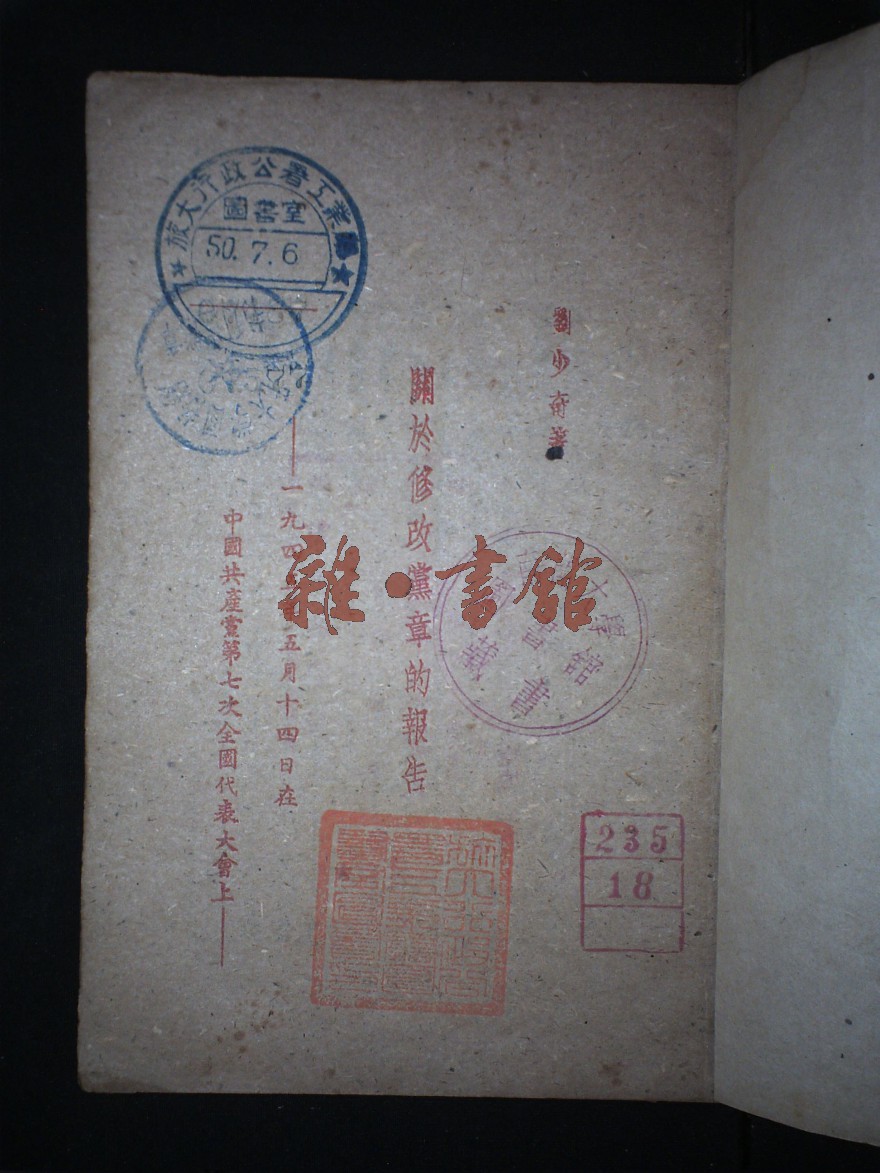 劉少奇著
關於修改黨章的報告
一九四 五月十四日在
中國共產黨第七次全國代表大會上
雜·書館
旅大行政公署工業廳
圖書室
50.7.6
大學
圖書館
235
18